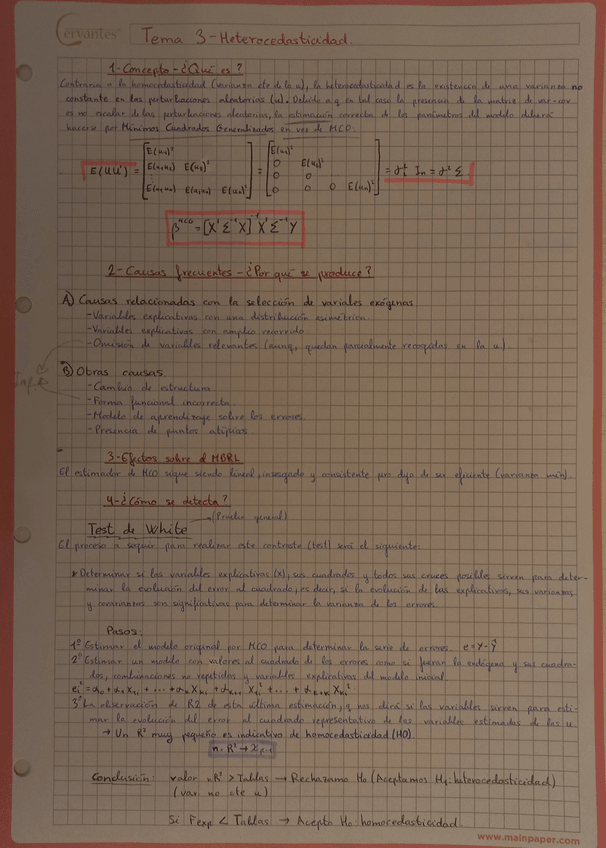 Cervantes®
Tema 3-Heterocedasticidad.
1-Concepto-¿Qué es?
Contraria a la homocedasticidad (varianza cte de la u), la heterocedasticidad es la existencia de una varianza no
constante en las perturbaciones aleatorias (u). Debido a q en tal caso la presencia de la matriz de var-cov
es no escalar de las perturbaciones aleatorias, la estimación correcta de los parámetros del modelo deberá
hacerse por Mínimos Cuadrados Generalizados en vez de MCO.
E(UU') = [E(u₁)² E(u₁u₂) E(u₂)² ⋮ E(u₁uₙ) E(u₂uₙ) E(uₙ)²] = [E(u₁)² 0 E(u₂)² 0 0 0 0 0 E(uₙ)²] = σᵢ² Iₙ = σ² Σ
β^MCG = [X'Σ⁻¹X]⁻¹X'Σ⁻¹Y
2-Causas frecuentes-¿Por qué se produce?
A) Causas relacionadas con la selección de variales exógenas
-Variables explicativas con una distribución asimétrica.
-Variables explicativas con amplio recorrido
-Omisión de variables relevantes (aunq, quedan parcialmente recogidas en la u)
B) Obras causas
-Cambio de estructura
-Forma funcional incorrecta
-Modelo de aprendizaje sobre los errores.
-Presencia de puntos atípicos
3-Efectos sobre el MBRL
El estimador de MCO sigue siendo lineal, insesgado y consistente pero deja de ser eficiente (varianza mín).
4-¿Cómo se detecta?
Test de White → (Prueba general)
El proceso a seguir para realizar este contraste (test) será el siguiente:
* Determinar si las variables explicativas (X), sus cuadrados y todos sus cruces posibles sirven para deter-
minar la evolución del error al cuadrado, es decir, si la evolución de las explicativas, sus varianzas
y covarianzas son significativas para determinar la varianza de los errores.
Pasos:
1º Estimar el modelo original por MCO para determinar la serie de errores. e=Y-Ŷ
2º Estimar un modelo con valores al cuadrado de los errores como si fueran la endógena y sus cuadra-
dos, combinaciones no repetidas y variables explicativas del modelo inicial.
3º La observación de R2 de esta última estimación, q nos dirá si las variables sirven para esti-
mar la evolución del error al cuadrado representativo de las varianzas estimadas de las u
→ Un R² muy pequeño es indicativo de homocedasticidad (H0).
n·R² → χp-1
Conclusión: valor nR² > Tablas → Rechazamo H₀ (Aceptamos H₁: heterocedasticidad)
(var no cte u)
Si Fexp < Tablas → Acepto H₀: homocedasticidad.
www.mainpaper.com